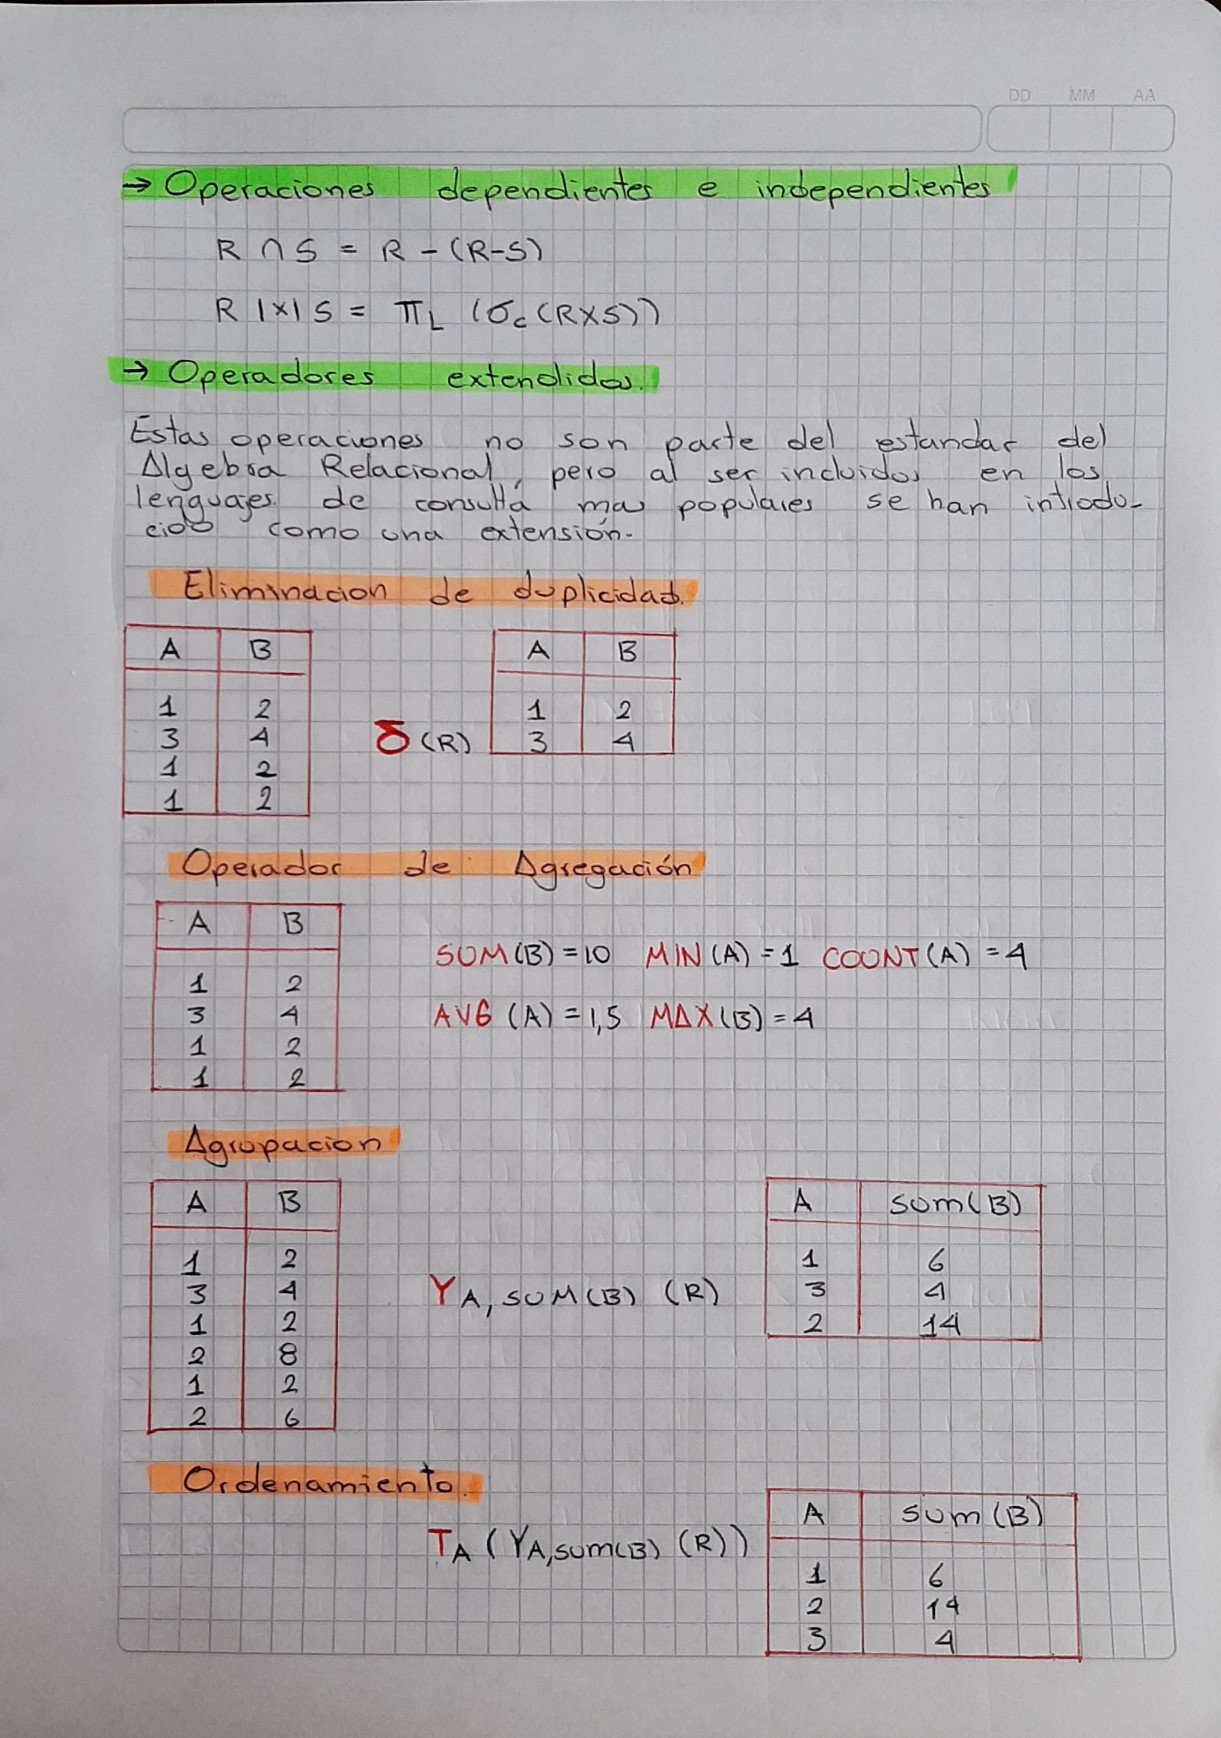 DD MM AA
→ Operaciones dependientes e independientes
R ∩ S = R - (R-S)
R |×| S = π L (σc (R×S))
→ Operadores extendidos.
Estas operaciones no son parte del estandar del
Algebra Relacional, pero al ser incluidos en los
lenguajes de consulta mas populares se han introdu-
cido como una extensión.
Eliminacion de duplicidad.
A B
1 2
3 4
1 2
1 2
δ (R)
A B
1 2
3 4
Operador de Agregación
A B
1 2
3 4
1 2
1 2
SUM(B) = 10 MIN(A) = 1 COUNT(A) = 4
AVG (A) = 1,5 MAX(B) = 4
Agrupacion
A B
1 2
3 4
1 2
2 8
1 2
2 6
γ A, SUM(B) (R)
A sum(B)
1 6
3 4
2 14
Ordenamiento.
T A (γ A,sum(B) (R))
A sum(B)
1 6
2 14
3 4